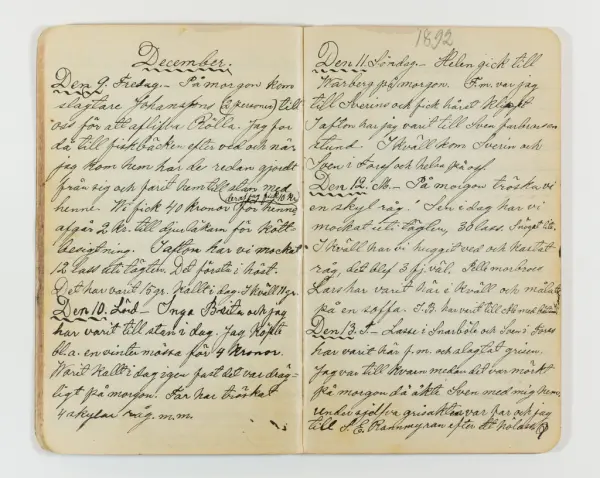 December.
Den 9. Fredag.- På morgon kom
slagtare Johanssons (2 personer) till
oss för att aflifva Rölla. Jag for
då till fiskbäcken efter ved och när
jag kom hem har de redan gjordt
från sig och farit hem till stan med
henne. Vi fick 40 kronor för henne
afgår 2 kr. till djurläkarn för kött-
besigtning. I afton har vi mockat
12 lass uti täglen. Det första i höst.
Det har varit 5 gr. kallt i dag. I kväll 11 gr.
Den 10. Lörd- Inga Brita och jag
har varit till stan i dag. Jag köpte
bl.a. en vintermössa för 4 kronor.
Varit kallt i dag igen fast det var dräg-
ligt på morgon. Far har tröskat
4 skylar råg. m.m.
1892
Den 11. Söndag.- Helen gick till
Warberg på morgon. F.m. var jag
till Sverins och fick håret klippt
I afton har jag varit till Sven farbrorsen
stund. I kväll kom Sverin och
Sven i Förs och helsa på oss.
Den 12. M.- På morgon tröska vi
en skyl råg. Sen i dag har vi
mockat uti täglen, 38 lass.
I kväll har vi huggit ved och kastat
råg, det blef 3 fj. väl. Pelle morbrors
Lars har varit här i kväll och målat
på en soffa. I.B. har varit till
Den 13. T.- Lasse i Snarböle och Sven i Förs
har varit här f.m. och slagtat grisen.
Jag var till kvarn medan det var mörkt
på morgon då åkte Sven med mig hem,
under sjelfva grisaktea var far och jag
till J. E. Rannmyran efter ett hölass